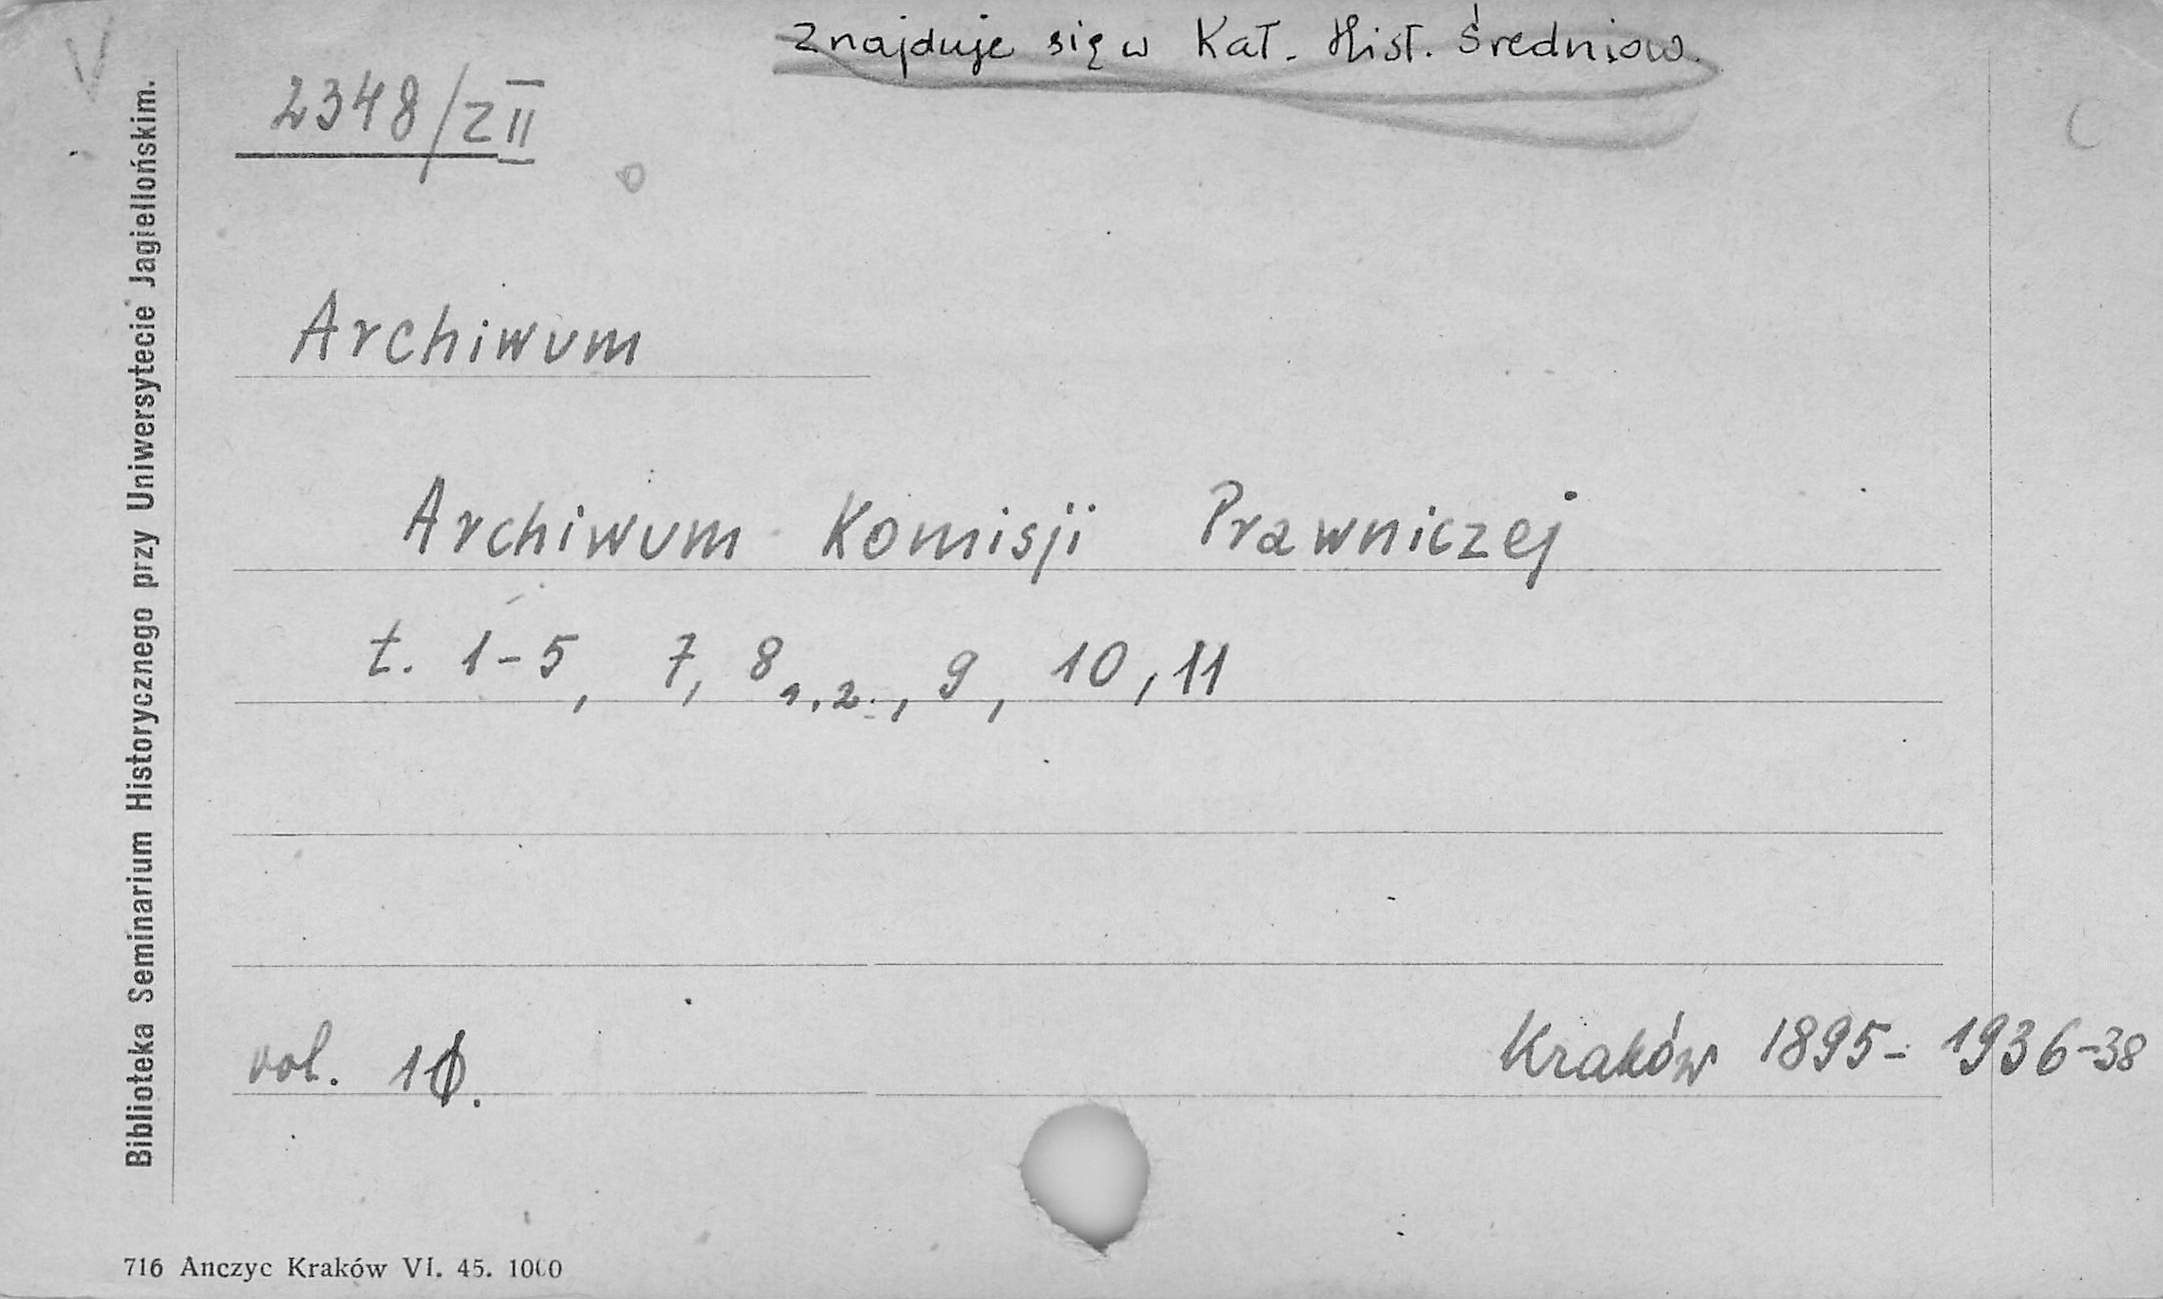 Znajduje się w Kat. Hist. Średniow.
2348/Z II
Archiwum
Archiwum Komisji Prawniczej
t. 1-5, 7, 8 1.2., 9, 10, 11
vol.
Kraków 1895- 1936-38
Biblioteka Seminarium Historycznego przy Uniwersytecie Jagiellońskim.
716 Anczyc Kraków VI. 45. 1000